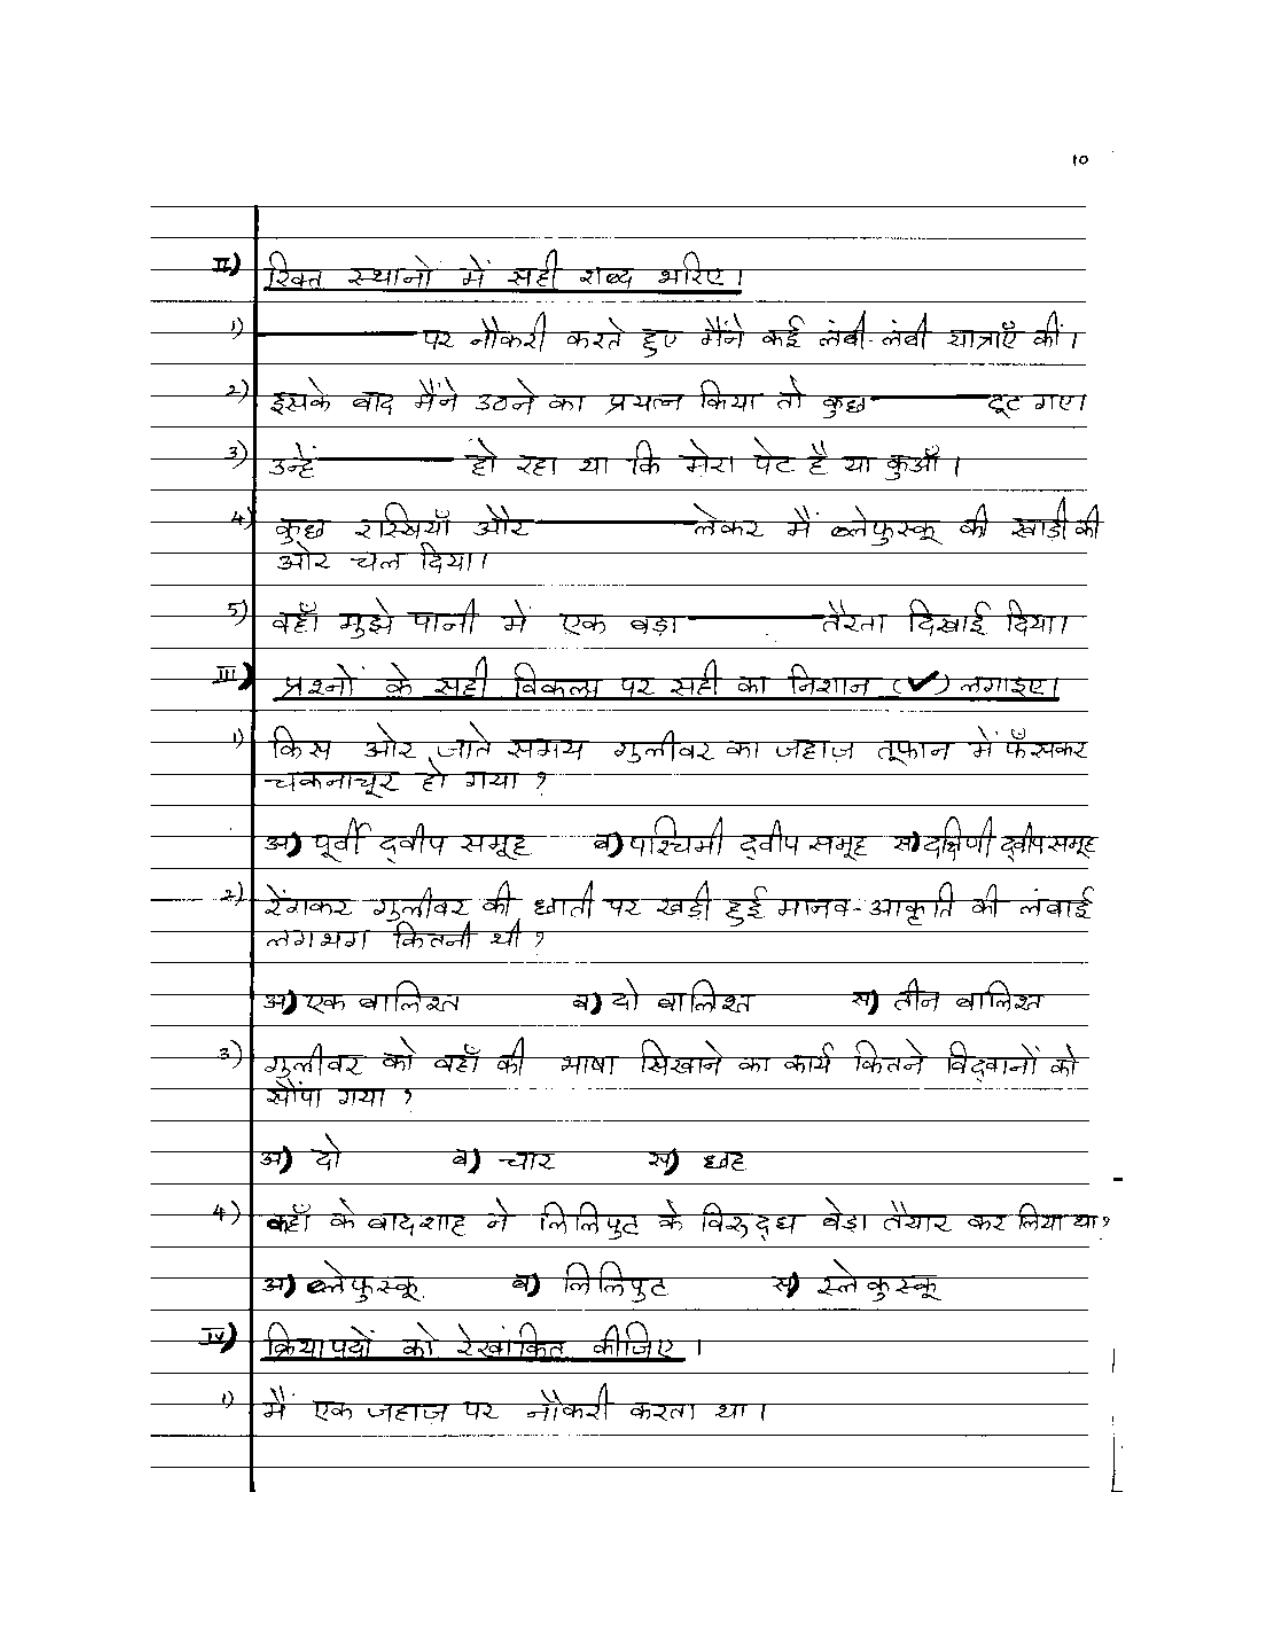 10
II) रिक्त स्थानों में सही शब्द भरिए।
1) ________ पर नौकरी करते हुए मैंने कई लंबी-लंबी यात्राएँ कीं।
2) इसके बाद मैंने उठने का प्रयत्न किया तो कुछ ________ टूट गए।
3) उन्हें ________ हो रहा था कि मेरा पेट है या कुआँ।
4) कुछ रस्सियाँ और ________ लेकर मैं ब्लेफुस्कू की खाड़ी की
ओर चल दिया।
5) वहाँ मुझे पानी में एक बड़ा ________ तैरता दिखाई दिया।
III) प्रश्नों के सही विकल्प पर सही का निशान (✓) लगाइए।
1) किस ओर जाते समय गुलीवर का जहाज़ तूफान में फँसकर
चकनाचूर हो गया ?
अ) पूर्वी द्वीप समूह ब) पश्चिमी द्वीप समूह स) दक्षिणी द्वीप समूह
2) रेंगकर गुलीवर की छाती पर खड़ी हुई मानव-आकृति की लंबाई
लगभग कितनी थी ?
अ) एक बालिश्त ब) दो बालिश्त स) तीन बालिश्त
3) गुलीवर को वहाँ की भाषा सिखाने का कार्य कितने विद्वानों को
सौंपा गया ?
अ) दो ब) चार स) छह
4) कहाँ के बादशाह ने लिलिपुट के विरुद्ध बेड़ा तैयार कर लिया था?
अ) ब्लेफुस्कू ब) लिलिपुट स) स्लेकुस्कू
IV) क्रियापदों को रेखांकित कीजिए।
1) मैं एक जहाज़ पर नौकरी करता था।